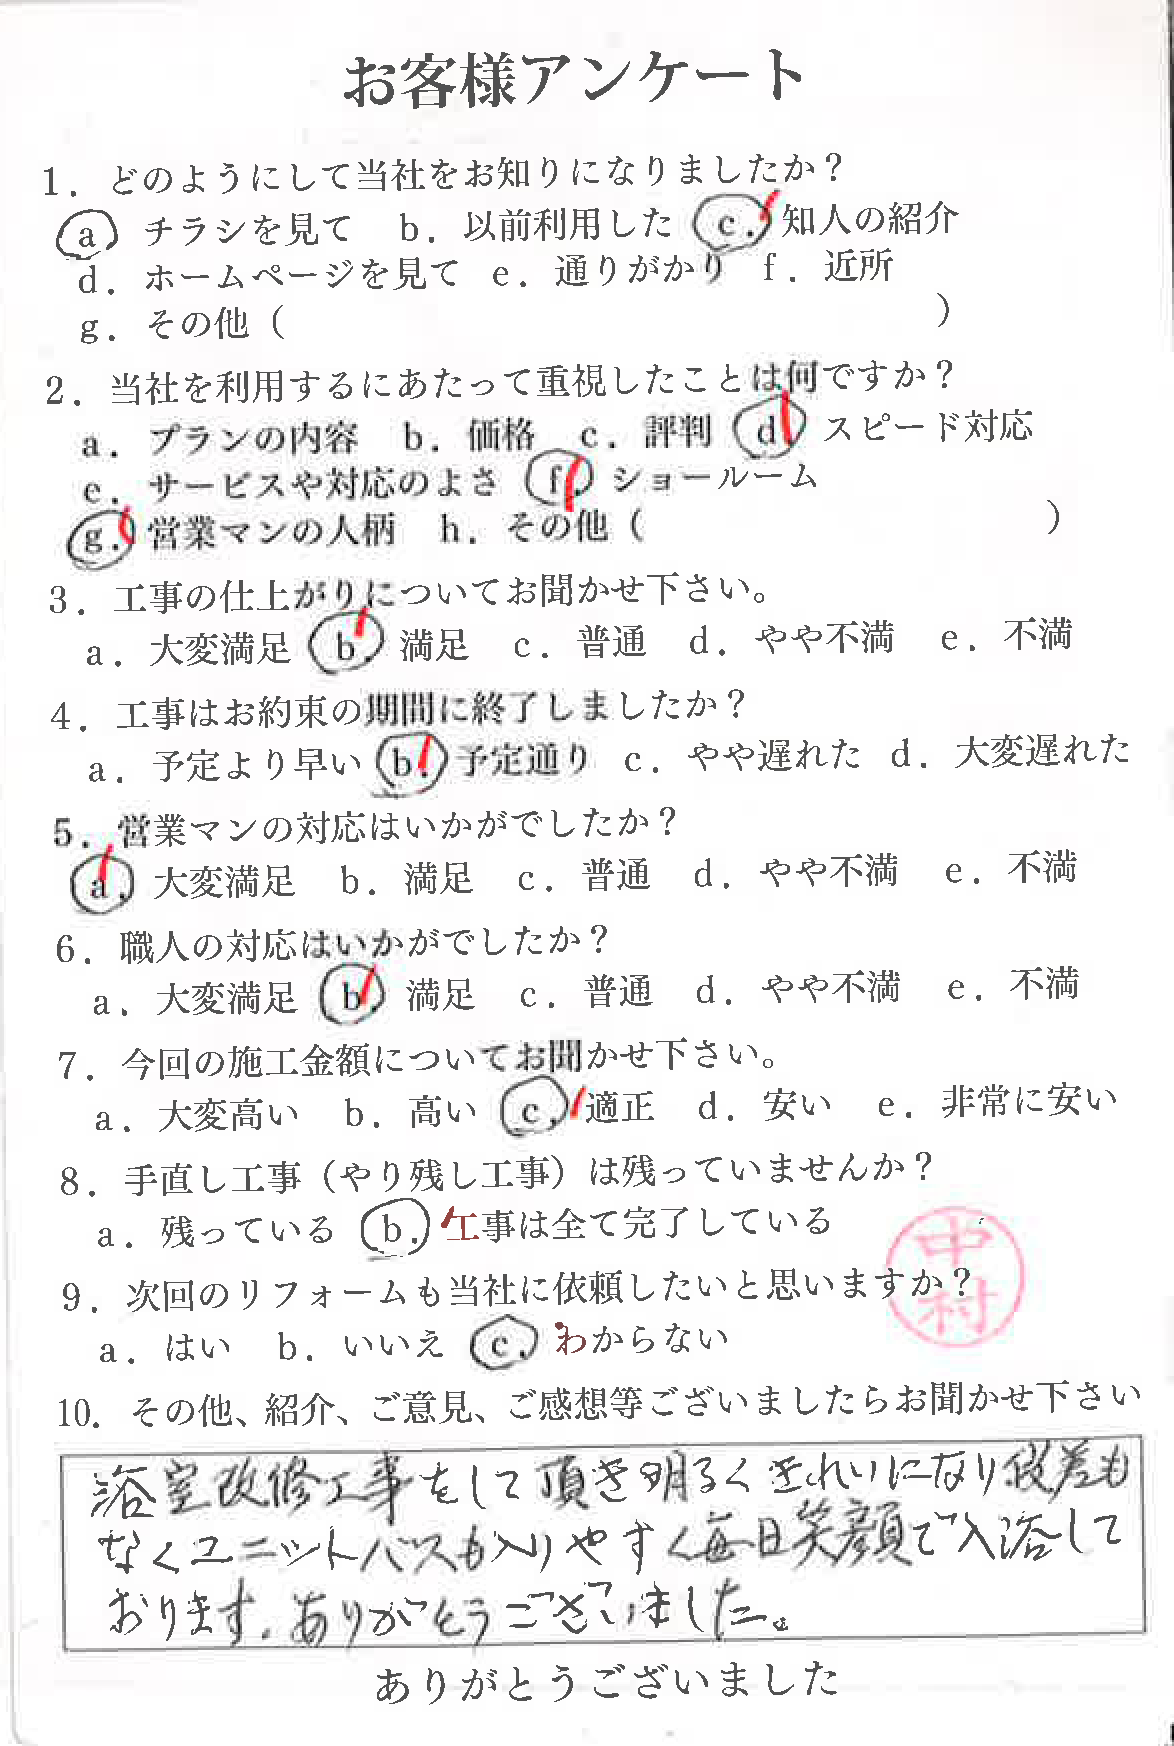 お客様アンケート
1．どのようにして当社をお知りになりましたか？
a チラシを見て b．以前利用した c．知人の紹介
d．ホームページを見て e．通りがかり f．近所
g．その他（ ）
2．当社を利用するにあたって重視したことは何ですか？
a．プランの内容 b．価格 c．評判 d スピード対応
e．サービスや対応のよさ f．ショールーム
g．営業マンの人柄 h．その他（ ）
3．工事の仕上がりについてお聞かせ下さい。
a．大変満足 b．満足 c．普通 d．やや不満 e．不満
4．工事はお約束の期間に終了しましたか？
a．予定より早い b．予定通り c．やや遅れた d．大変遅れた
5．営業マンの対応はいかがでしたか？
a．大変満足 b．満足 c．普通 d．やや不満 e．不満
6．職人の対応はいかがでしたか？
a．大変満足 b．満足 c．普通 d．やや不満 e．不満
7．今回の施工金額についてお聞かせ下さい。
a．大変高い b．高い c．適正 d．安い e．非常に安い
8．手直し工事（やり残し工事）は残っていませんか？
a．残っている b．工事は全て完了している
9．次回のリフォームも当社に依頼したいと思いますか？
a．はい b．いいえ c．わからない
中村
10．その他、紹介、ご意見、ご感想等ございましたらお聞かせ下さい
浴室改修工事をして頂き明るくきれいになり段差も
なくユニットバスも入りやすく毎日笑顔で入浴して
おります。ありがとうございました。
ありがとうございました